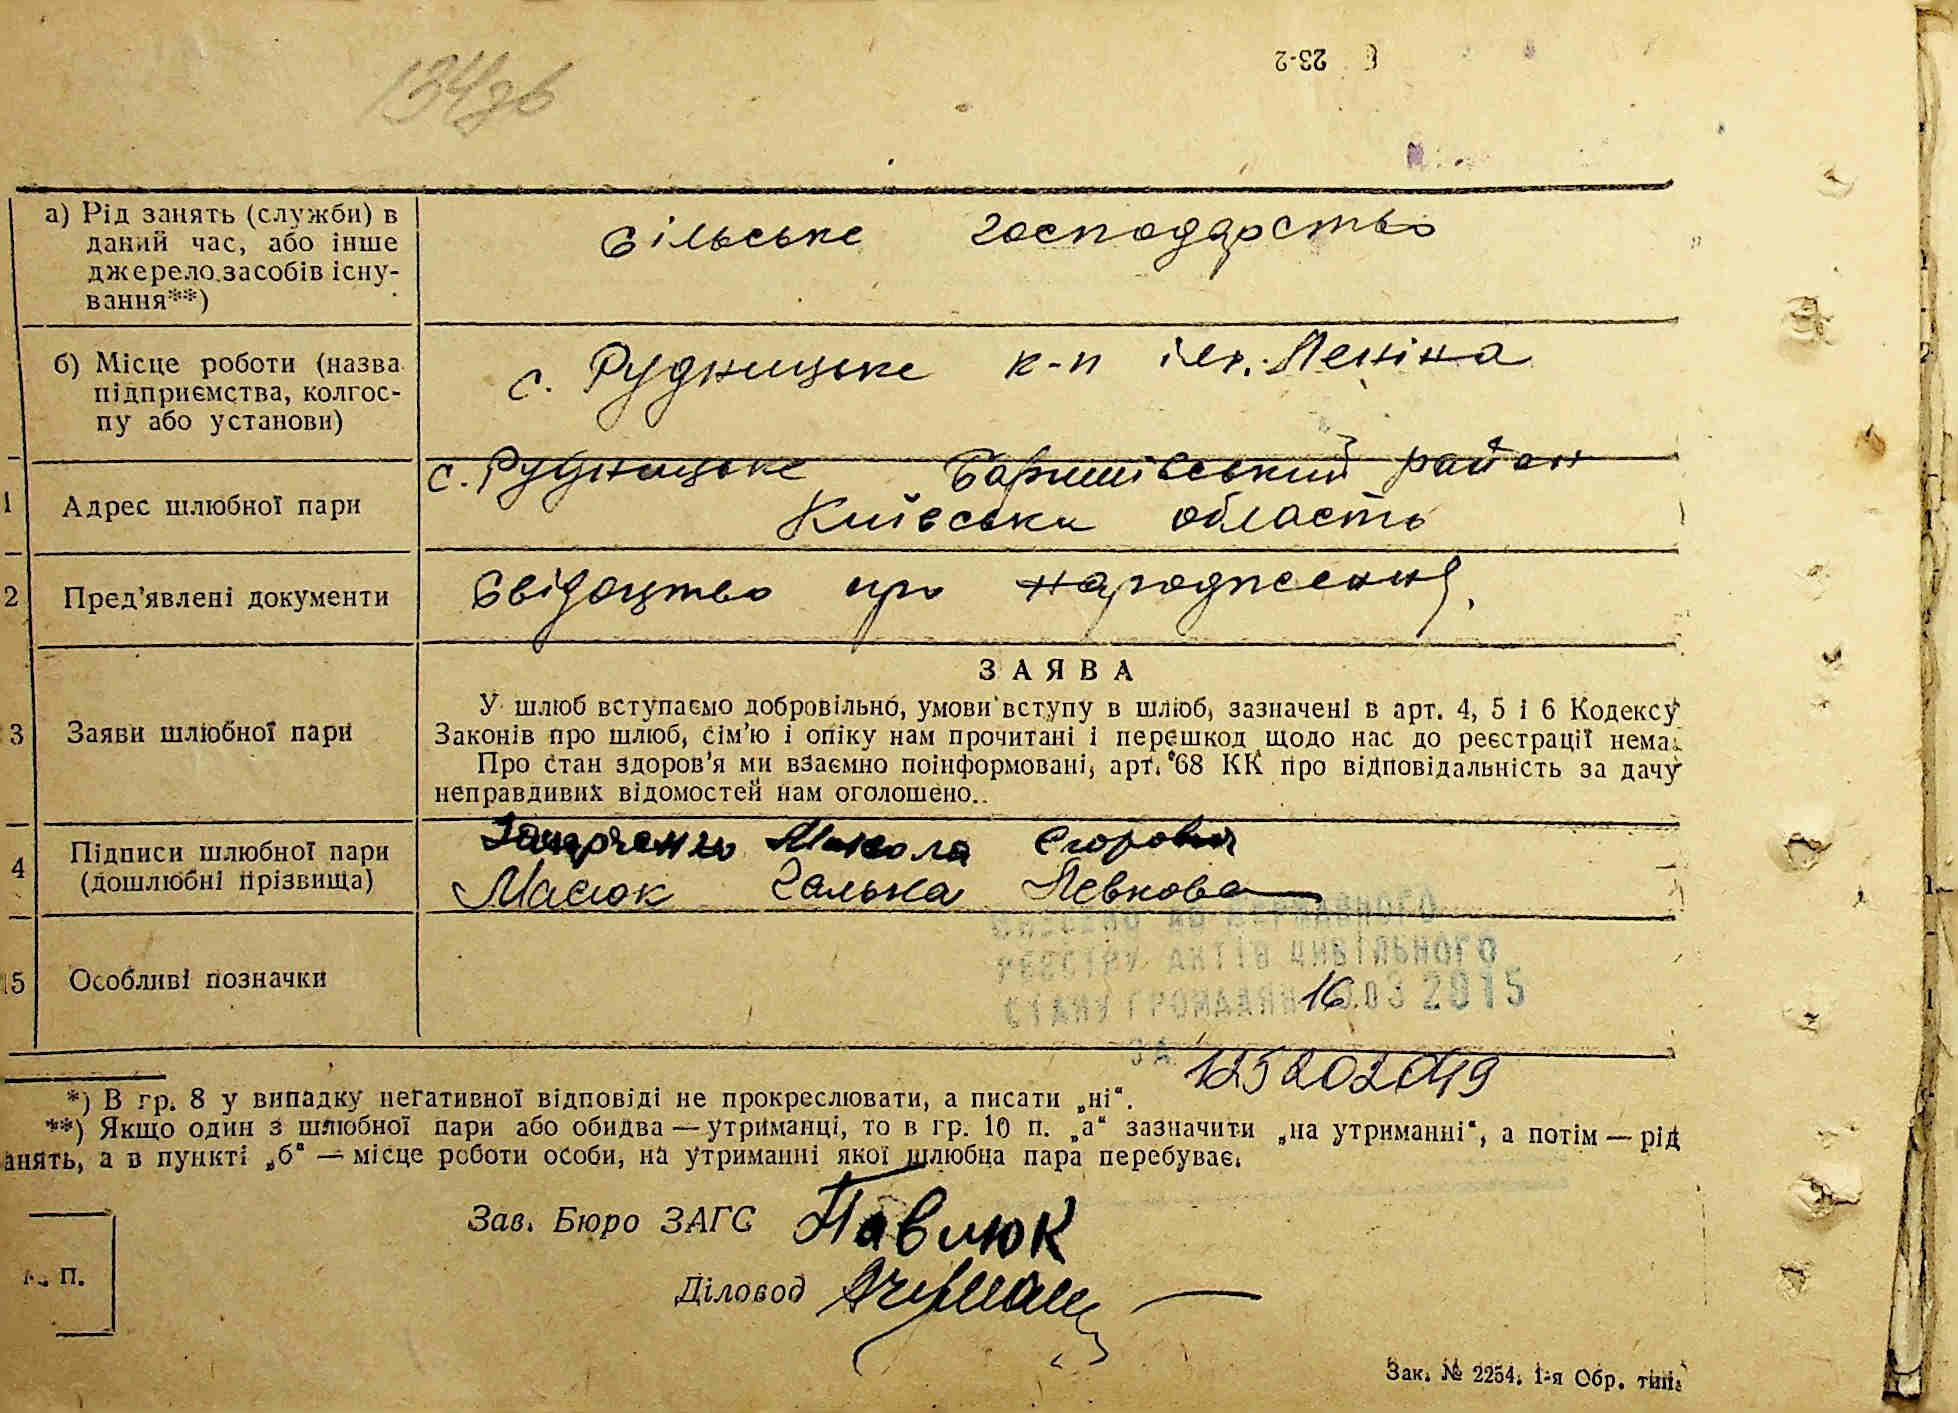 134зв
23-2
а) Рід занять (служби) в
даний час, або інше
джерело засобів існу-
вання**)
сільське господарство
б) Місце роботи (назва
підприємства, колгос-
пу або установи)
с. Рудницьке к-п ім. Леніна
1
Адрес шлюбної пари
с. Рудницьке Баришівський район
Київська область
2
Пред’явлені документи
Свідоцтво про народження.
3
Заяви шлюбної пари
ЗАЯВА
У шлюб вступаємо добровільно, умови вступу в шлюб, зазначені в арт. 4, 5 і 6 Кодексу
Законів про шлюб, сім’ю і опіку нам прочитані і перешкод щодо нас до реєстрації нема.
Про стан здоров’я ми взаємно поінформовані, арт. 68 КК про відповідальність за дачу
неправдивих відомостей нам оголошено..
4
Підписи шлюбної пари
(дошлюбні прізвища)
Микола Єгорович
Масюк Галька Левкова
15
Особливі позначки
ВНЕСЕНО ДО ДЕРЖАВНОГО
РЕЄСТРУ АКТІВ ЦИВІЛЬНОГО
СТАНУ ГРОМАДЯН 16.03 2015
ЗА
*) В гр. 8 у випадку негативної відповіді не прокреслювати, а писати „ні“.
**) Якщо один з шлюбної пари або обидва — утриманці, то в гр. 10 п. „а“ зазначити „на утриманні“, а потім — рід
анять, а в пункті „б“ — місце роботи особи, на утриманні якої шлюбна пара перебуває.
Зав. Бюро ЗАГС Павлюк
Діловод
П.
Зак. № 2254. 1-я Обр. тип.